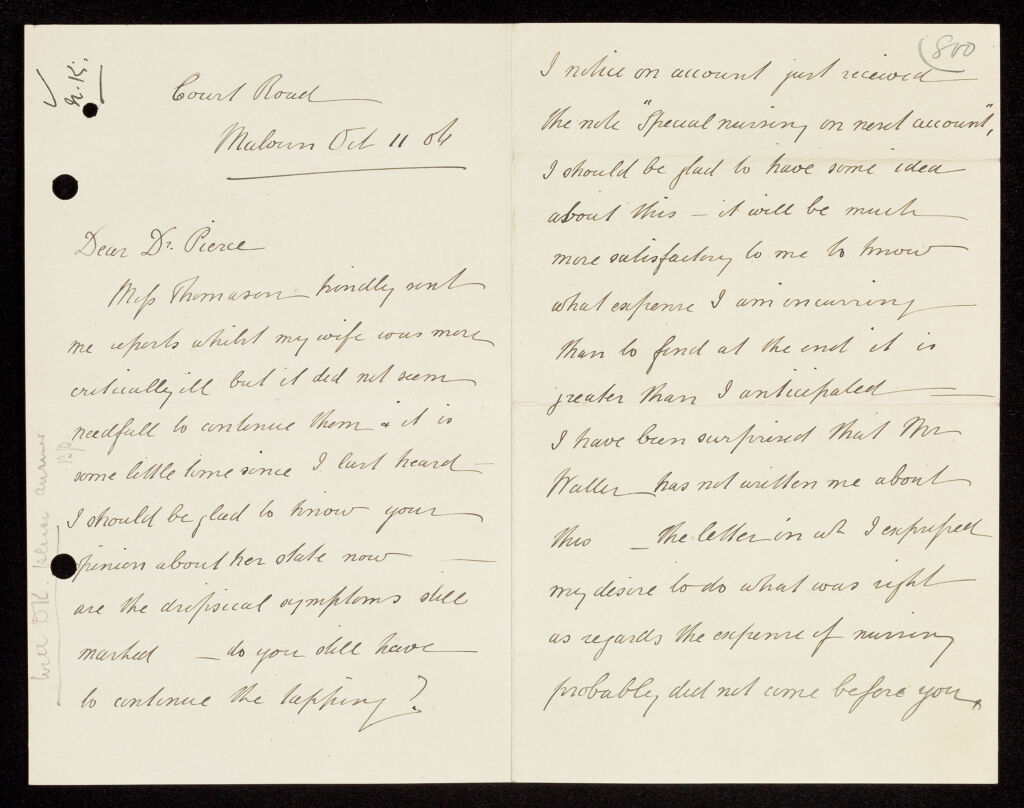 N.K.
Court Road
Malvern Oct 11 06
Dear Dr. Pierce
Miss Thomason kindly sent
me reports whilst my wife was more
critically ill but it did not seem
needfull to continue them & it is
some little time since I last heard –
I should be glad to know your
opinion about her state now —
are the dropsical symptoms still
marked – do you still have
to continue the tapping?
Will D K. please answer
B.P.
800
I notice on account just received
the note "Special nursing on next account",
I should be glad to have some idea
about this – it will be much
more satisfactory to me to know
what expense I am incurring —
than to find at the end it is
greater than I anticipated —
I have been surprised that Mr
Waller has not written me about
this – the letter in wh I expressed
my desire to do what was right
as regards the expense of nursing
probably did not come before you,